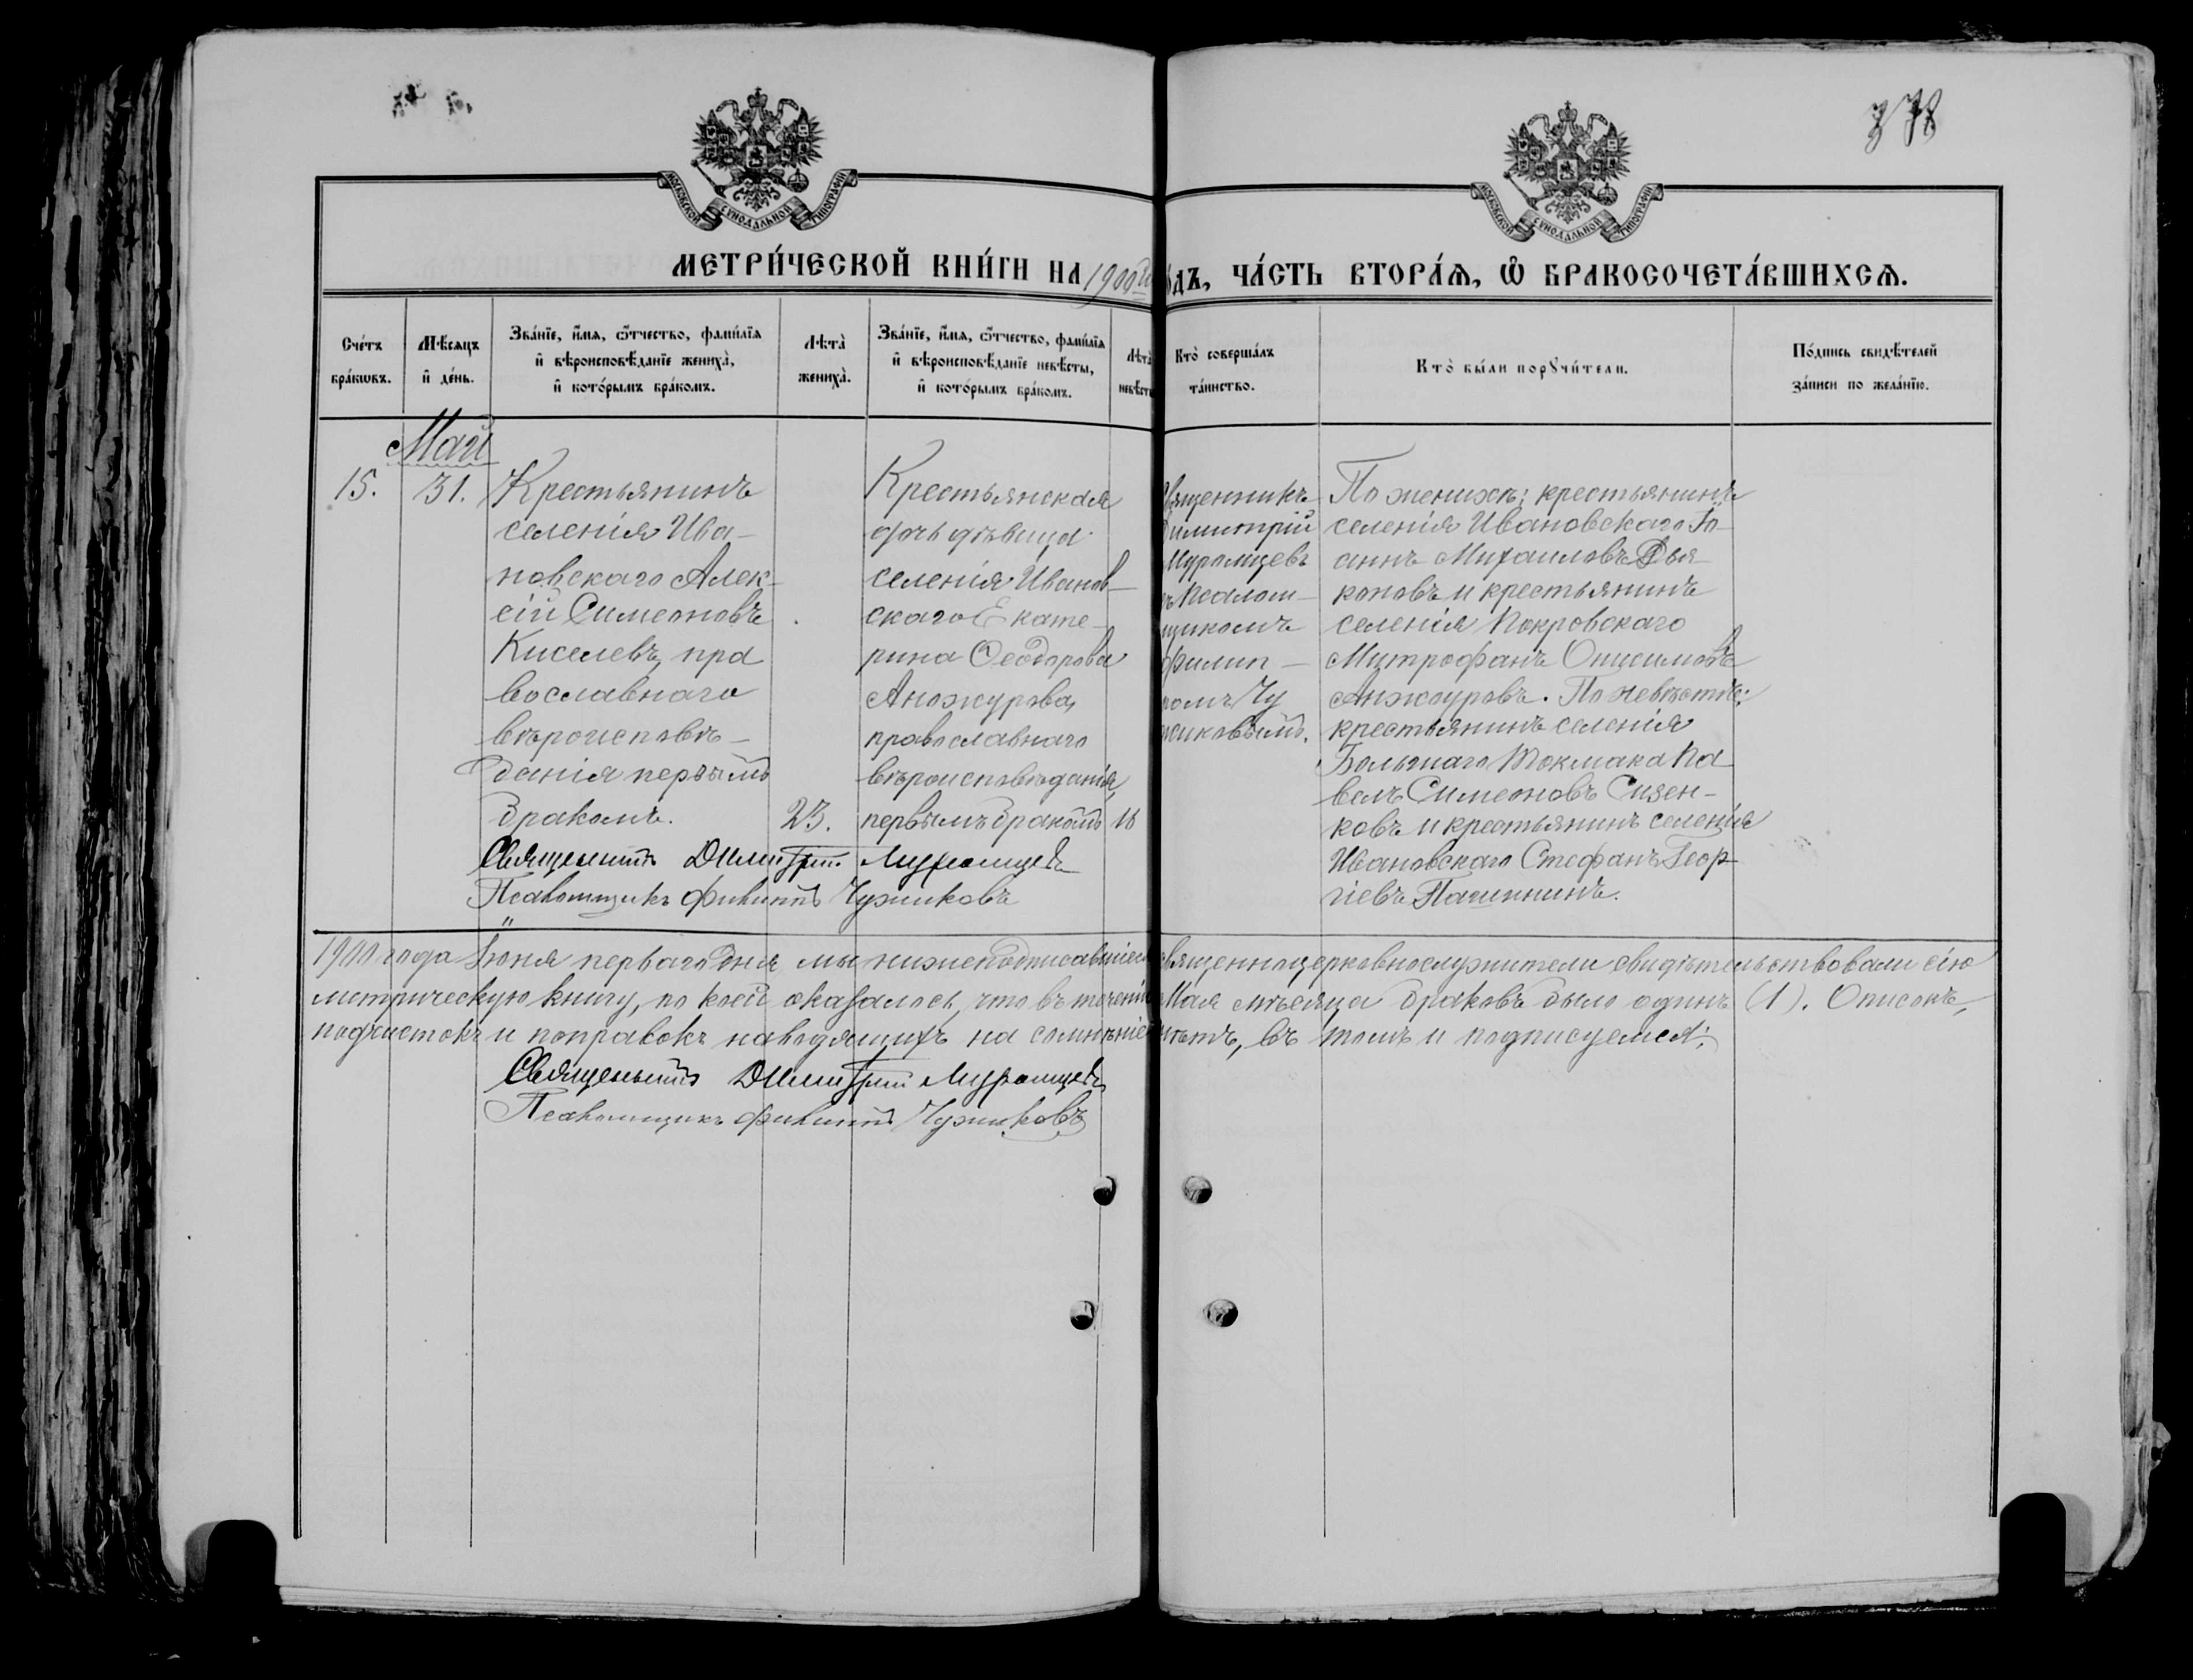 МОСКОВСКОЙ СѴНОДАЛЬНОЙ ТИПОГРАФІИ
МОСКОВСКОЙ СѴНОДАЛЬНОЙ ТИПОГРАФІИ
МЕТРИ́ЧЕСКОЙ КНИ́ГИ НА 1900й
ОДЪ, ЧА́СТЬ ВТОРА́Ѧ, Ѽ БРАКОСОЧЕТА́ВШИХСѦ.
Сче́тъ бра́кѡвъ.
Мѣ́сѧцъ и҆ де́нь.
Зва́нїе, и҆́мѧ, ѻ҆́тчество, фами́лїѧ
и҆ вѣроисповѣ́данїе жениха̀,
и҆ кото́рымъ бра́комъ.
Лѣта̀ жениха̀.
Зва́нїе, и҆́мѧ, ѻ҆́тчество, фами́лїѧ
и҆ вѣроисповѣ́данїе невѣ́сты,
и҆ кото́рымъ бра́комъ.
Лѣта̀
невѣ́сты
Кто̀ соверша́лъ
та́инство.
Кто̀ бы́ли порꙋчи́тели.
По́дпись свидѣ́телей
за́писи по жела́нїю.
Май
15.
31.
Крестьянинъ
селенія Ива-
новскаго Алек-
сій Симеоновъ
Киселевъ, пра
вославнаго
вѣроисповѣ-
данія первымъ
бракомъ.
23.
Крестьянская
дочь дѣвица
селенія Иванов-
скаго Екате-
рина Ѳеодорова
Анжурова,
православнаго
вѣроисповѣданія,
первымъ бракомъ
16
Священникъ
Димитрій
Муромцевъ
съ псалом-
щикомъ
Филип-
помъ Чу
жиковымъ.
По женихѣ: крестьянинъ
селенія Ивановскаго Іо-
аннъ Михаиловъ Дья-
коновъ и крестьянинъ
селенія Покровскаго
Митрофанъ Онисимовъ
Анжауровъ. По невѣстѣ:
крестьянинъ селенія
Большаго Токмака Па
велъ Симеоновъ Сизен-
ковъ и крестьянинъ селенія
Ивановскаго Стефанъ Геор-
гіевъ Пашининъ.
Священникъ Димитрій Муромцевъ
Псаломщикъ Филиппъ Чужиковъ
1900 года Іюня перваго дня мы нижеподписавшіеся священноцерковнослужители свидѣтельствовали сію
метрическую книгу, по коей оказалось, что въ теченіи Мая мѣсяца браковъ было одинъ (1). Описокъ,
подчистокъ и поправокъ наводящихъ на сомнѣніе нѣтъ, въ томъ и подписуемся:
Священникъ Димитрій Муромцевъ
Псаломщикъ Филиппъ Чужиковъ